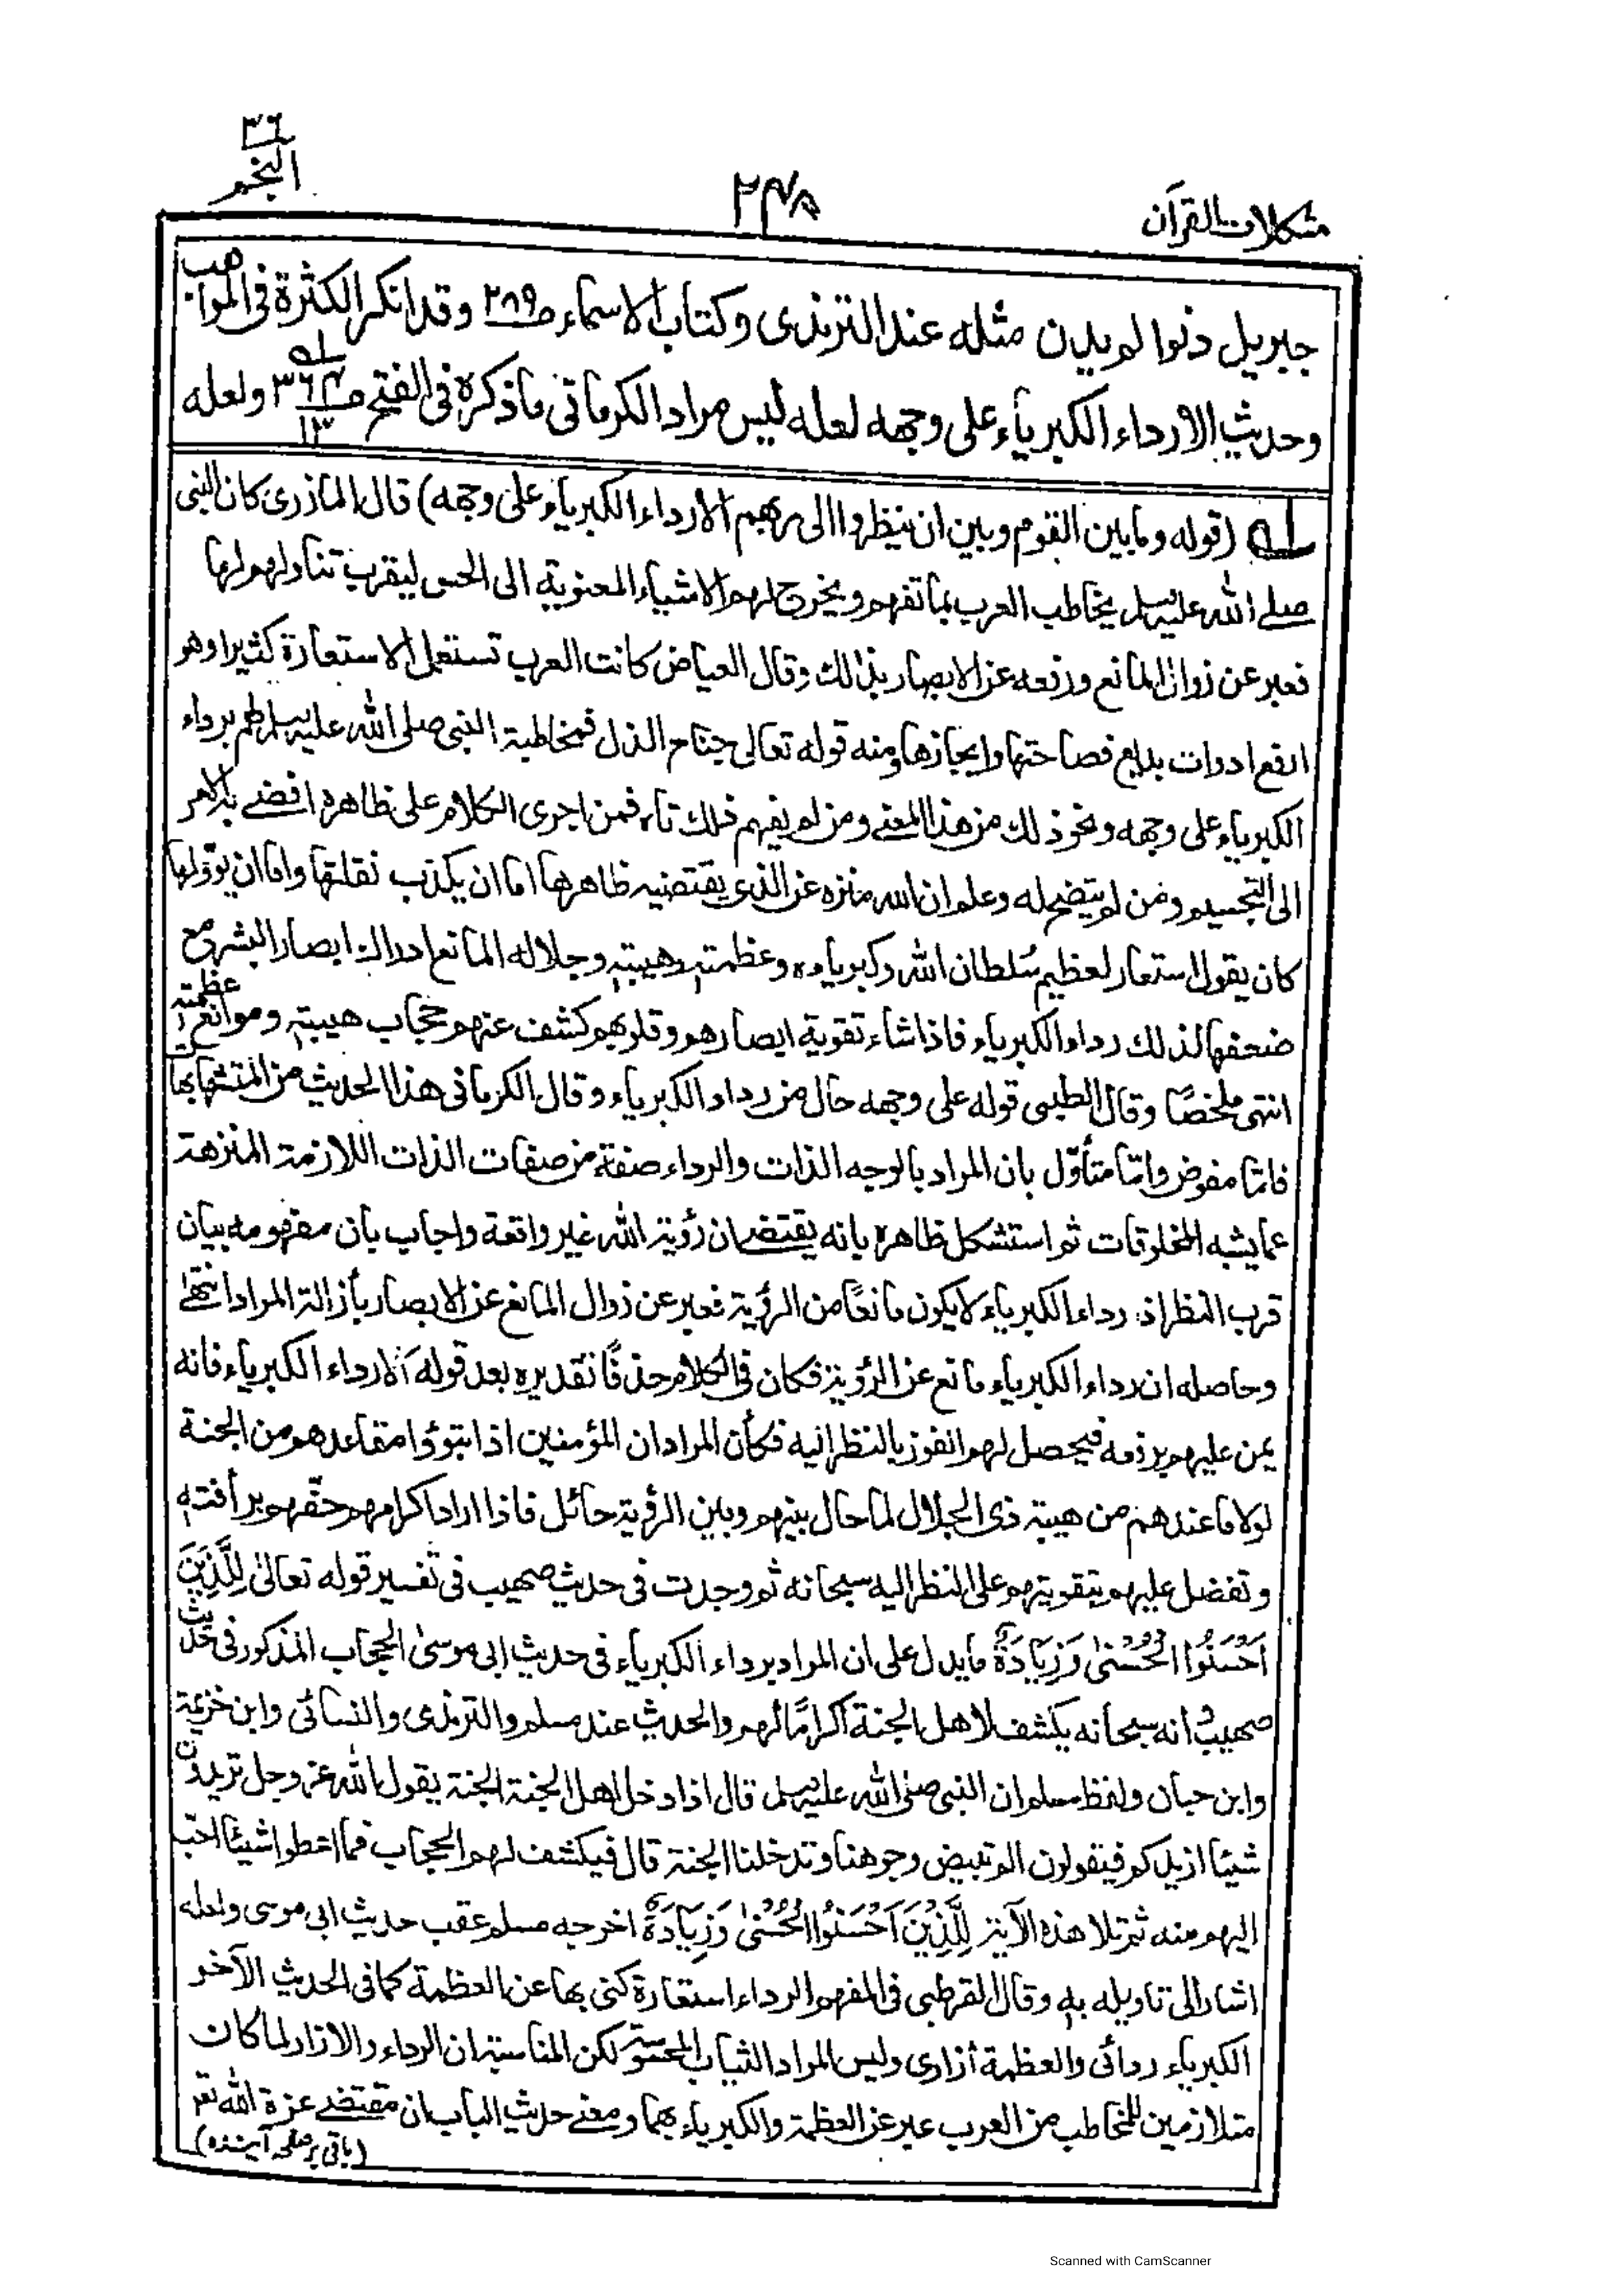 ٣٦
النجم
٢٣٨
مشكلات القرآن
جبريل دنوا لم يدن مثله عند الترمذى وكتاب الاسماء ص٢٨٩ وقد انكر الكثرة فى المواهب
وحديث الارداء الكبرياء على وجهه لعله ليس مراد الكرمانى ماذكره فى الفتح ص٣٦٤/١٣ له ولعله
له (قوله ومابين القوم وبين ان ينظروا الى ربهم الارداء الكبرياء على وجهه) قال المازرى كان النبى
صلے الله عليه وسلم يخاطب العرب بما تفهم ويخرج لهم الاشياء المعنوية الى الحس ليقرب تناولهم لها
فعبر عن زوال المانع ورفعه عن الابصار بذلك وقال العياض كانت العرب تستعمل الاستعارة كثيرا وهو
ارفع ادوات بديع فصاحتها وايجازها ومنه قوله تعالى جناح الذل فمخاطبة النبى صلى الله عليه وسلم لهم برداء
الكبرياء على وجهه ونحو ذلك من هذا المعنے ومن لم يفهم ذلك تاه فمن اجرى الكلام على ظاهره افضے به الامر
الى التجسيم ومن لم يتضح له وعلم ان الله منزه عن الذى يقتضيه ظاهرها اما ان يكذب نقلتها واما ان يؤولها
كان يقول استعار لعظيم سلطان الله وكبرياءه وعظمته وهيبته وجلاله المانع ادراك ابصار البشر مع
ضعفها لذلك رداء الكبرياء فاذا شاء تقوية ابصارهم وقلوبهم كشف عنهم حجاب هيبته وموانع عظمته
انتهى ملخصًا وقال الطيبى قوله على وجهه حال من رداء الكبرياء وقال الكرمانى هذا الحديث من المتشابهات
فاما مفوض واما متأوّل بان المراد بالوجه الذات والرداء صفة من صفات الذات اللازمة المنزهة
عما يشبه المخلوقات ثم استشكل ظاهره بانه يقتضے ان رؤية الله غير واقعة واجاب بان مفهومه بيان
قرب النظر اذ رداء الكبرياء لايكون مانعًا من الرؤية فعبر عن زوال المانع عن الابصار بازالة المراد انتهى
وحاصله ان رداء الكبرياء مانع عن الرؤية فكان فى الكلام حذفًا تقديره بعد قوله الارداء الكبرياء فانه
يمن عليهم برفعه فيحصل لهم الفوز بالنظر اليه فكأن المراد ان المؤمنين اذا تبوؤا مقاعدهم من الجنة
لولا ما عندهم من هيبة ذى الجلال لما حال بينهم وبين الرؤية حائل فاذا اراد اكرامهم حفّهم برأفته
وتفضل عليهم بتقويتهم على النظر اليه سبحانه ثم وجدت فى حديث صهيب فى تفسير قوله تعالىٰ لِلَّذِيْنَ
اَحْسَنُوا الْحُسْنىٰ وَزِيَادَةٌ مايدل على ان المراد برداء الكبرياء فى حديث ابى موسىٰ الحجاب المذكور فى حديث
صهيب انه سبحانه يكشف لاهل الجنة اكرامًا لهم والحديث عند مسلم والترمذى والنسائى وابن خزيمة
وابن حبان ولفظ مسلم ان النبى صلى الله عليه وسلم قال اذا دخل اهل الجنة الجنة يقول الله عز وجل تريدون
شيئا ازيدكم فيقولون الم تبيض وجوهنا وتدخلنا الجنة قال فيكشف لهم الحجاب فما اعطوا شيئا احب
اليهم منه ثم تلا هذه الآية لِلَّذِيْنَ اَحْسَنُوا الْحُسْنىٰ وَزِيَادَةٌ اخرجه مسلم عقب حديث ابى موسى ولعله
اشار الى تاويله به وقال القرطبى فى المفهم الرداء استعارة كنى بها عن العظمة كما فى الحديث الآخر
الكبرياء ردائى والعظمة أزارى وليس المراد الثياب المحسوسة لكن المناسبة ان الرداء والازار لما كان
متلازمين للمخاطب من العرب عبر عن العظمة والكبرياء بهما ومعنے حديث الباب ان مقتضے عزة الله تعـ
(باقى بر صفحه آينده)
Scanned with CamScanner